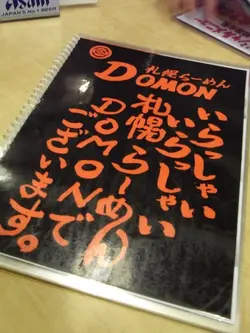 Asahi
JAPAN'S No.1 BEER
札幌らーめん
DOMON
いらっしゃい
いらっしゃい
札幌らーめん
DOMONで
ございます。